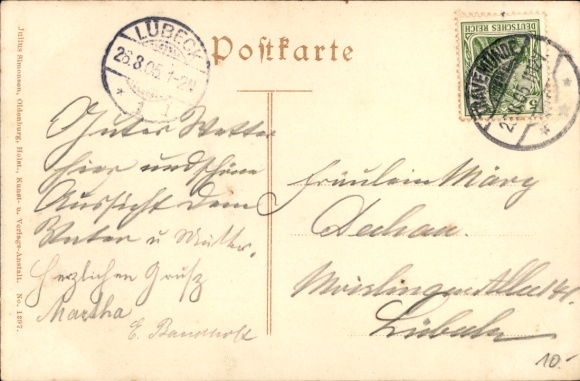 Postkarte
LÜBECK
26.8.05. 1-2N
DEUTSCHES REICH
5
TRAVEMÜNDE
Gutes Wetter
hier und schöne
Aussicht dem
Vater u Mutter.
Herzlichen Grusz
Martha
E. Bandholt
Fräulein Mary
Dechau.
Moislinger Allee
Lübeck
10.-
Julius Simonsen, Oldenburg, Holst., Kunst- u. Verlags-Anstalt. No. 1297.